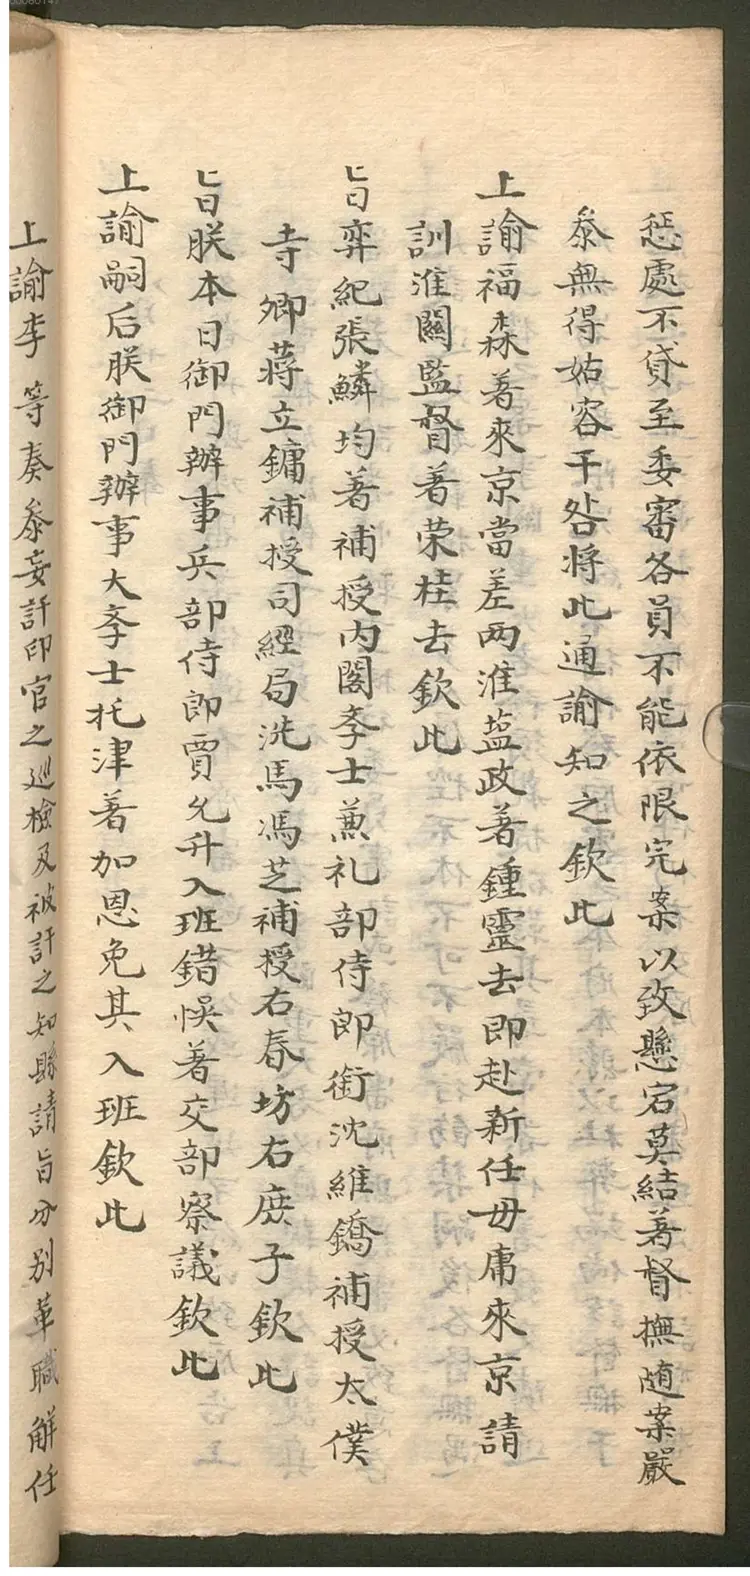 惩處不貸至委審各員不能依限完案以致懸宕莫結著督撫随案嚴
叅無得姑容干咎將此通諭知之欽此
上諭福森著來京當差两淮塩政著鍾靈去即赴新任毋庸來京請
訓淮關監督著荣桂去欽此
旨弈紀張鱗均著補授内閣斈士兼礼部侍郎銜沈維鐈補授太僕
寺卿蒋立鏞補授司經局洗馬馮芝補授右春坊右庶子欽此
旨朕本日御門辦事兵部侍郎賈允升入班錯悮著交部察議欽此
上諭嗣后朕御門辦事大斈士托津著加恩免其入班欽此
上諭李等奏叅妄訐印官之巡檢及被訐之知縣請旨分别革職解任